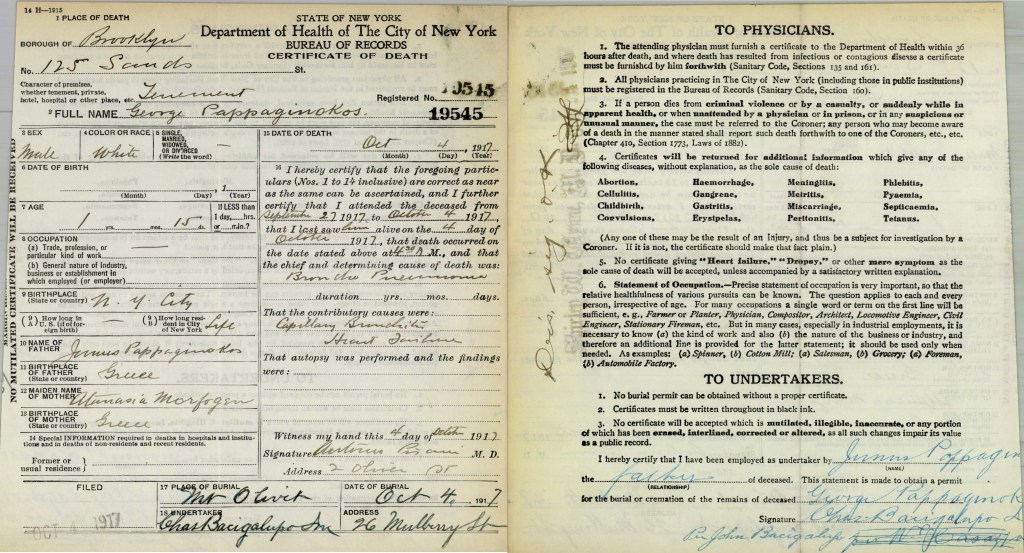 14 H-1915
1 PLACE OF DEATH
STATE OF NEW YORK
Department of Health of The City of New York
BUREAU OF RECORDS
CERTIFICATE OF DEATH
BOROUGH OF Brooklyn
No. 125 Sands St.
Character of premises, whether tenement, private, hotel, hospital or other place, etc. Tenement
Registered No. 19545
19545
2 FULL NAME George Pappaginokos.
3 SEX
Male
4 COLOR OR RACE
White
5 SINGLE, MARRIED, WIDOWED, OR DIVORCED (Write the word)
6 DATE OF BIRTH
, 1
(Month) (Day) (Year)
7 AGE
1 yrs. mos. 15 ds.
If LESS than 1 day, hrs. or min.?
8 OCCUPATION
(a) Trade, profession, or particular kind of work
(b) General nature of industry, business or establishment in which employed (or employer)
9 BIRTHPLACE (State or country) N. Y. City
(9A) How long in U. S. (if of foreign birth)
(9B) How long resident in City of New York Life
10 NAME OF FATHER Pappaginokos
11 BIRTHPLACE OF FATHER (State or country) Greece
12 MAIDEN NAME OF MOTHER Atanasia Morfogen
13 BIRTHPLACE OF MOTHER (State or country) Greece
14 Special INFORMATION required in deaths in hospitals and institutions and in deaths of non-residents and recent residents.
Former or usual residence
15 DATE OF DEATH
Oct 4, 1917
(Month) (Day) (Year)
16 I hereby certify that the foregoing particulars (Nos. 1 to 14 inclusive) are correct as near
as the same can be ascertained, and I further
certify that I attended the deceased from
September 27 1917 to October 4 1917,
that I last saw him alive on the 4 day of
October 1917, that death occurred on
the date stated above at 4 30 A M., and that
the chief and determining cause of death was:
Broncho Pneumonia
duration yrs. mos. days.
That the contributory causes were:
Capillary Bronchitis
Heart Failure
That autopsy was performed and the findings
were:
Witness my hand this 4 day of October 1917
Signature M. D.
Address 2 Oliver St
FILED
OCT 1917
17 PLACE OF BURIAL
Mt Olivet
DATE OF BURIAL
Oct 4, 1917
18 UNDERTAKER
Chas Bacigalupo Inc
ADDRESS
26 Mulberry St
NO MUTILATED CERTIFICATE WILL BE RECEIVED
TO PHYSICIANS.
1. The attending physician must furnish a certificate to the Department of Health within 36
hours after death, and where death has resulted from infectious or contagious disease a certificate
must be furnished by him forthwith (Sanitary Code, Sections 135 and 161).
2. All physicians practicing in The City of New York (including those in public institutions)
must be registered in the Bureau of Records (Sanitary Code, Section 160).
3. If a person dies from criminal violence or by a casualty, or suddenly while in
apparent health, or when unattended by a physician or in prison, or in any suspicious or
unusual manner, the case must be referred to the Coroner; any person who may become aware
of a death in the manner stated shall report such death forthwith to one of the Coroners, etc., etc.
(Chapter 410, Section 1773, Laws of 1882).
4. Certificates will be returned for additional information which give any of the
following diseases, without explanation, as the sole cause of death:
Abortion, Haemorrhage, Meningitis, Phlebitis,
Cellulitis, Gangrene, Metritis, Pyaemia,
Childbirth, Gastritis, Miscarriage, Septicaemia,
Convulsions, Erysipelas, Peritonitis, Tetanus.
(Any one of these may be result of an injury, and thus be a subject for investigation by a
Coroner. If it is not, the certificate should make that fact plain.)
5. No certificate giving "Heart failure," "Dropsy," or other mere symptom as the
sole cause of death will be accepted, unless accompanied by a satisfactory written explanation.
6. Statement of Occupation.—Precise statement of occupation is very important, so that the
relative healthfulness of various pursuits can be known. The question applies to each and every
person, irrespective of age. For many occupations a single word or term on the first line will be
sufficient, e. g., Farmer or Planter, Physician, Compositor, Architect, Locomotive Engineer, Civil
Engineer, Stationary Fireman, etc. But in many cases, especially in industrial employments, it is
necessary to know (a) the kind of work and also (b) the nature of the business or industry, and
therefore an additional line is provided for the latter statement; it should be used only when
needed. As examples: (a) Spinner, (b) Cotton Mill; (a) Salesman, (b) Grocery; (a) Foreman,
(b) Automobile Factory.
TO UNDERTAKERS.
1. No burial permit can be obtained without a proper certificate.
2. Certificates must be written throughout in black ink.
3. No certificate will be accepted which is mutilated, illegible, inaccurate, or any portion
of which has been erased, interlined, corrected or altered, as all such changes impair its value
as a public record.
I hereby certify that I have been employed as undertaker by
(NAME)
the father of deceased. This statement is made to obtain a permit
(RELATIONSHIP)
for the burial or cremation of the remains of deceased George Pappaginok
Signature Chas. Bacigalupo
Per John Bacigalupo